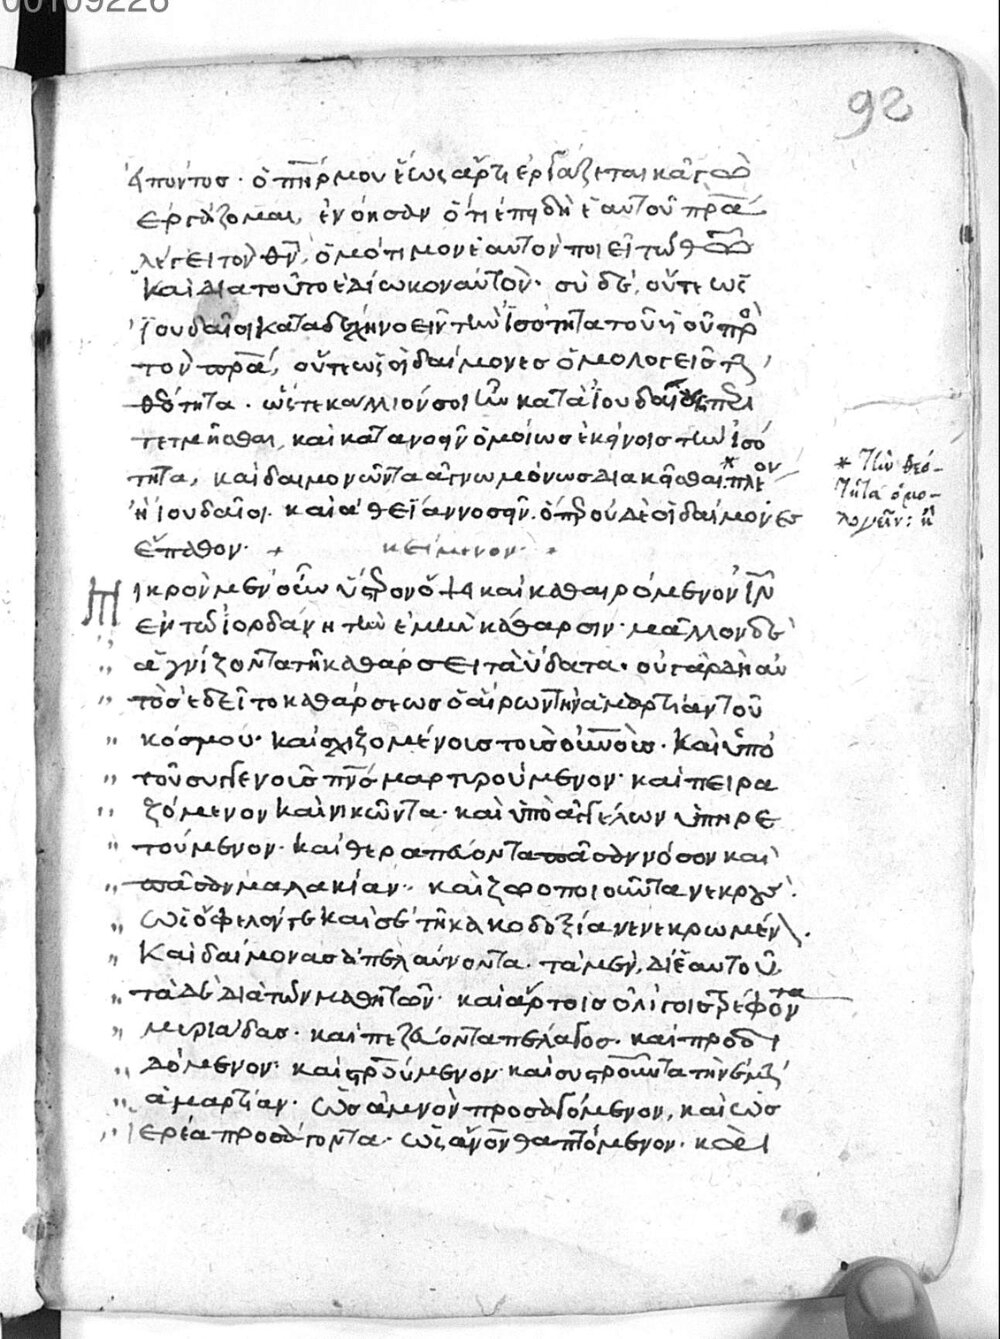 00109226
92
εἰπόντος· ὁ πηρ μου ἕως ἄρτι ἐργάζεται κἀγὼ
ἐργάζομαι, ἐνόησαν ὅτι ἐπειδὴ ἑαυτοῦ πρα
λέγει τὸν θν, ὁμότιμον ἑαυτὸν ποιεῖ τῷ θω
καὶ διατοῦτο ἐδίωκον αὐτόν· σὺ δὲ, οὔτε ὡς
Ἰουδαῖοι καταδέχη νοεῖν τὴν ἰσότητα τοῦ υἱοῦ πρὸς
τὸν πρα, οὔτε ὡς οἱ δαίμονες ὁμολογεῖς τὴν
θεότητα. ὥστε κάλλιόν σοι ἦν κατὰ Ἰουδαίους περι
τετμῆσθαι, καὶ κατανοεῖν ὁμοίως ἐκείνοις τὴν ἰσό
τητα, καὶ δαιμονῶντα ἀγνωμόνως διακεῖσθαι * πλέον
ἢ Ἰουδαῖοι. καὶ ἀθεΐαν νοσεῖν. ὅπερ οὐδὲ οἱ δαίμονες
ἔπαθον· + κείμενον·
* τὴν θεό-
τητα ὁμο-
λογεῖν: ἢ
Μικρὸν μὲν οὖν ὕστερον ὄψει καὶ καθαιρόμενον Ιν
ἐν τῷ Ἰορδάνη τὴν ἐμὴν κάθαρσιν· μᾶλλον δὲ
ἁγνίζοντα τῇ καθάρσει τὰ ὕδατα. οὐ γὰρ δὴ αὐ
τὸς ἐδεῖτο καθάρσεως ὁ αἴρων τὴν ἁμαρτίαν τοῦ
κόσμου· καὶ σχιζομένους τοὺς οὐνους. καὶ ὑπὸ
τοῦ συγγενοῦς πνς μαρτυρούμενον· καὶ πειρα
ζόμενον καὶ νικῶντα· καὶ ὑπὸ ἀγγέλων ὑπηρε
τούμενον· καὶ θεραπεύοντα πᾶσαν νόσον καὶ
πᾶσαν μαλακίαν· καὶ ζωοποιοῦντα νεκρούς.
ὡς ὄφελόν γε καὶ σὲ τῇ κακοδοξία νενεκρωμένον.
καὶ δαίμονας ἀπελαύνοντα. τὰ μὲν, δι' ἑαυτοῦ.
τὰ δὲ διὰ τῶν μαθητῶν· καὶ ἄρτοις ὀλίγοις τρέφοντα
μυριάδας· καὶ πεζεύοντα πέλαγος· καὶ προδι
δόμενον· καὶ σρούμενον· καὶ συσροῦντα τὴν ἐμὴν
ἁμαρτίαν· ὡς ἀμνὸν προσαγόμενον, καὶ ὡς
ἱερέα προσάγοντα· ὡς ανον θαπτόμενον· καὶ